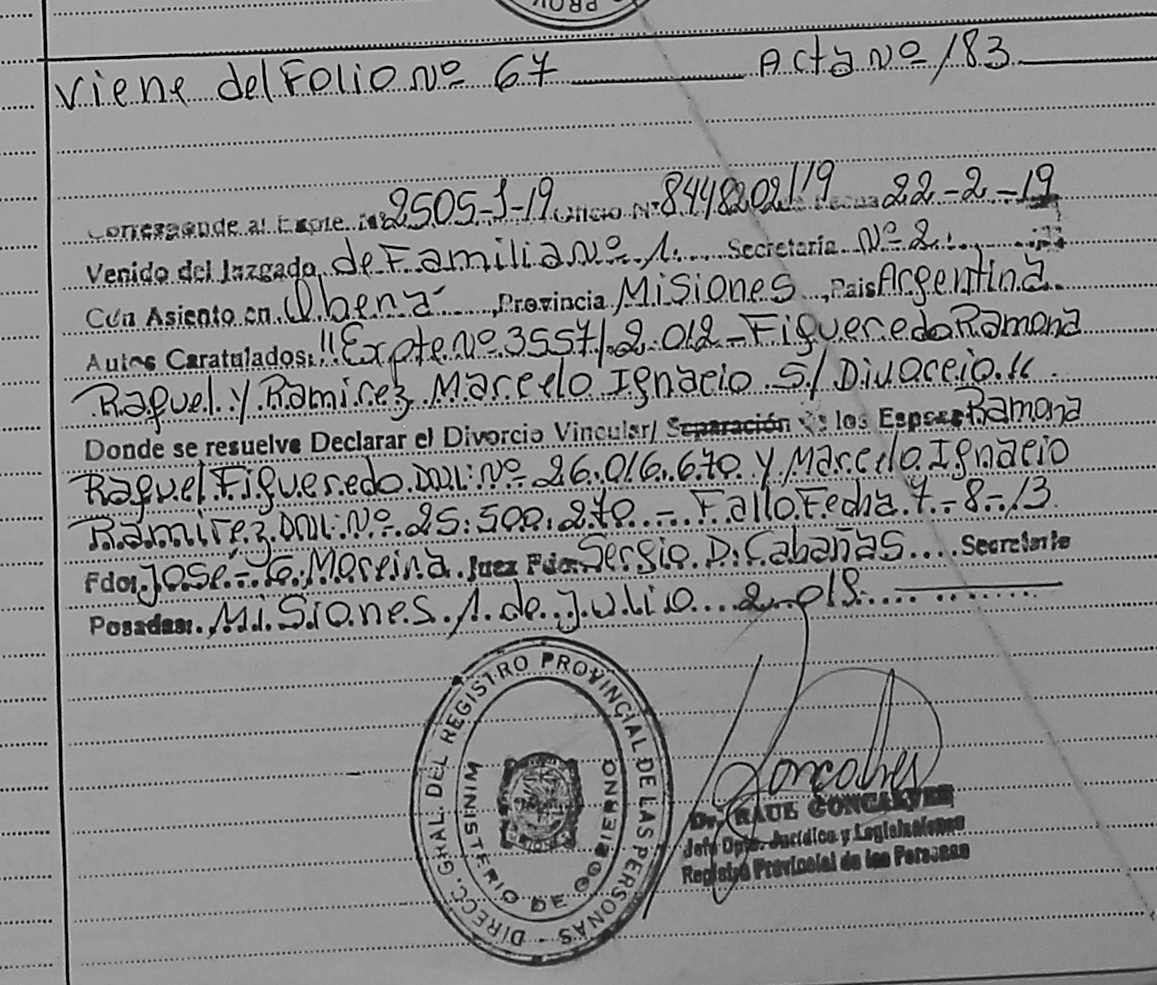 PROV
Viene del Folio Nº 67 Acta Nº 183
Corresponde al Expte. Nº 2505-J-19 Oficio Nº 8448202/19 de Fecha 22-2-19
Venido del Juzgado de Familia Nº 1. Secretaría Nº 2.
Con Asiento en Obera, Provincia Misiones, Pais Argentina.
Autos Caratulados: "Expte Nº 3557/2.012 - Figueredo Ramona
Raquel y Ramirez Marcelo Ignacio S/ Divorcio."
Donde se resuelve Declarar el Divorcio Vincular/ Separación de los Esposos Ramona
Raquel Figueredo. DNI: Nº 26.016.670 y Marcelo Ignacio
Ramirez. DNI: Nº 25.500.270.- Fallo Fecha 7-8-13
Fdo: José G. Moreira. Juez Fdo: Sergio D. Cabañas.... Secretario
Posadas: Misiones 1 de Julio 2.019.
DIRECC. GRAL. DEL REGISTRO PROVINCIAL DE LAS PERSONAS -
MINISTERIO DE GOBIERNO
Goncalves
Dr. RAUL GONCALVES
Jefe Dpto. Jurídico y Legislaciones
Registro Provincial de las Personas